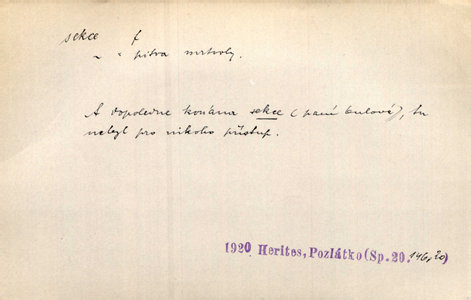 sekce f
„ „ pitva mrtvoly.
A dopoledne konána sekce (paní Culové), tu
nebyl pro nikoho přístup.
1920 Herites, Pozlátko (Sp. 20. 146,20)